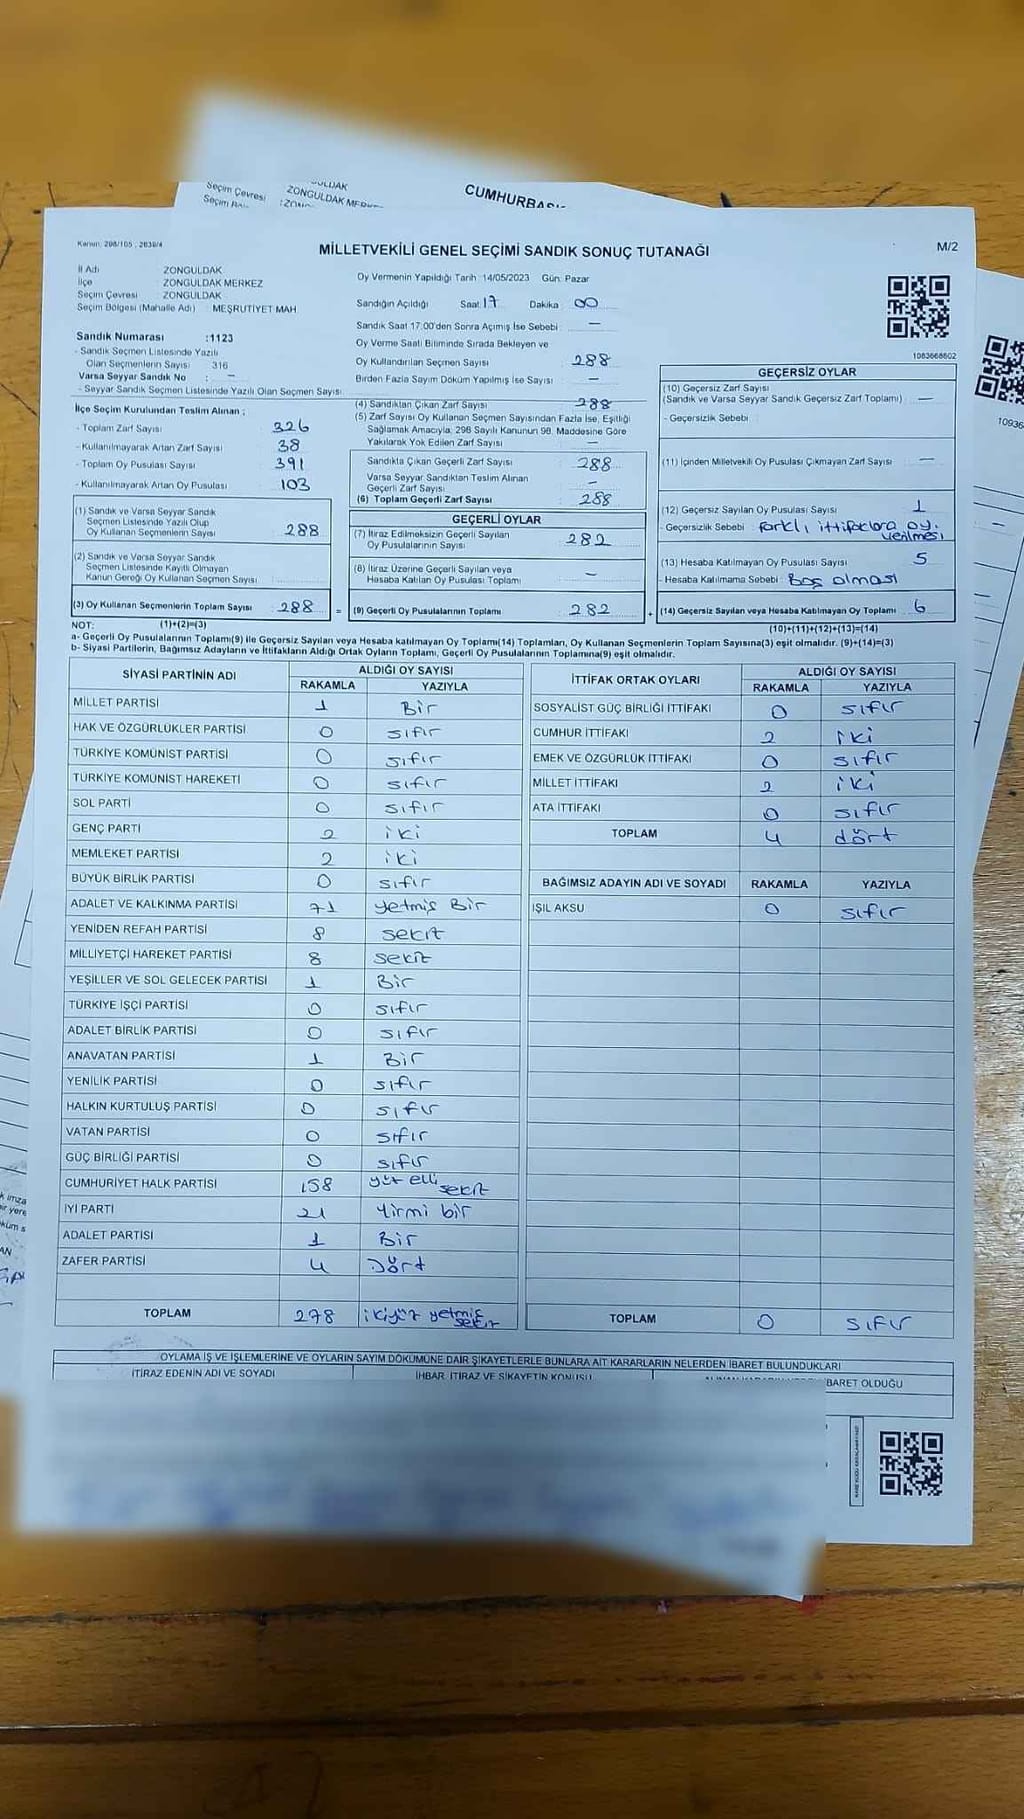 ZONGULDAK MERKEZ
CUMHURBAŞ
Kanun: 298/105 , 2839/4
MİLLETVEKİLİ GENEL SEÇİMİ SANDIK SONUÇ TUTANAĞI
M/2
İl Adı ZONGULDAK
İlçe ZONGULDAK MERKEZ
Seçim Çevresi : ZONGULDAK
Seçim Bölgesi (Mahalle Adı) : MEŞRUTİYET MAH
Oy Vermenin Yapıldığı Tarih :14/05/2023 Gün: Pazar
Sandığın Açıldığı Saat: 17 Dakika : 00
Sandık Saat 17:00'den Sonra Açılmış İse Sebebi : —
Oy Verme Saati Bitiminde Sırada Bekleyen ve
Oy Kullandırılan Seçmen Sayısı 288
Birden Fazla Sayım Döküm Yapılmış İse Sayısı : —
1083668602
Sandık Numarası :1123
- Sandık Seçmen Listesinde Yazılı
Olan Seçmenlerin Sayısı 316
Varsa Seyyar Sandık No : —
- Seyyar Sandık Seçmen Listesinde Yazılı Olan Seçmen Sayısı:
İlçe Seçim Kurulundan Teslim Alınan ;
- Toplam Zarf Sayısı 326
- Kullanılmayarak Artan Zarf Sayısı 38
- Toplam Oy Pusulası Sayısı 391
- Kullanılmayarak Artan Oy Pusulası 103
(1) Sandık ve Varsa Seyyar Sandık
Seçmen Listesinde Yazılı Olup
Oy Kullanan Seçmenlerin Sayısı 288
(2) Sandık ve Varsa Seyyar Sandık
Seçmen Listesinde Kayıtlı Olmayan
Kanun Gereği Oy Kullanan Seçmen Sayısı
(3) Oy Kullanan Seçmenlerin Toplam Sayısı 288 =
(4) Sandıktan Çıkan Zarf Sayısı 288
(5) Zarf Sayısı Oy Kullanan Seçmen Sayısından Fazla İse, Eşitliği
Sağlamak Amacıyla, 298 Sayılı Kanunun 98. Maddesine Göre
Yakılarak Yok Edilen Zarf Sayısı —
Sandıkta Çıkan Geçerli Zarf Sayısı 288
Varsa Seyyar Sandıktan Teslim Alınan
Geçerli Zarf Sayısı —
(6) Toplam Geçerli Zarf Sayısı 288
GEÇERLİ OYLAR
(7) İtiraz Edilmeksizin Geçerli Sayılan
Oy Pusulalarının Sayısı 282
(8) İtiraz Üzerine Geçerli Sayılan veya
Hesaba Katılan Oy Pusulası Toplamı —
(9) Geçerli Oy Pusulalarının Toplamı 282 +
GEÇERSİZ OYLAR
(10) Geçersiz Zarf Sayısı
(Sandık ve Varsa Seyyar Sandık Geçersiz Zarf Toplamı) —
- Geçersizlik Sebebi :
(11) İçinden Milletvekili Oy Pusulası Çıkmayan Zarf Sayısı —
(12) Geçersiz Sayılan Oy Pusulası Sayısı 1
- Geçersizlik Sebebi : farklı ittifaklara oy.
verilmesi
(13) Hesaba Katılmayan Oy Pusulası Sayısı 5
- Hesaba Katılmama Sebebi : Boş olması
(14) Geçersiz Sayılan veya Hesaba Katılmayan Oy Toplamı 6
NOT: (1)+(2)=(3) (10)+(11)+(12)+(13)=(14)
a- Geçerli Oy Pusulalarının Toplamı(9) ile Geçersiz Sayılan veya Hesaba katılmayan Oy Toplamı(14) Toplamları, Oy Kullanan Seçmenlerin Toplam Sayısına(3) eşit olmalıdır. (9)+(14)=(3)
b- Siyasi Partilerin, Bağımsız Adayların ve İttifakların Aldığı Ortak Oyların Toplamı, Geçerli Oy Pusulalarının Toplamına(9) eşit olmalıdır.
SİYASİ PARTİNİN ADI ALDIĞI OY SAYISI
RAKAMLA YAZIYLA
MİLLET PARTİSİ 1 Bir
HAK VE ÖZGÜRLÜKLER PARTİSİ 0 sıfır
TÜRKİYE KOMÜNİST PARTİSİ 0 sıfır
TÜRKİYE KOMÜNİST HAREKETİ 0 sıfır
SOL PARTİ 0 sıfır
GENÇ PARTİ 2 iki
MEMLEKET PARTİSİ 2 iki
BÜYÜK BİRLİK PARTİSİ 0 sıfır
ADALET VE KALKINMA PARTİSİ 71 yetmiş Bir
YENİDEN REFAH PARTİSİ 8 sekiz
MİLLİYETÇİ HAREKET PARTİSİ 8 sekiz
YEŞİLLER VE SOL GELECEK PARTİSİ 1 Bir
TÜRKİYE İŞÇİ PARTİSİ 0 sıfır
ADALET BİRLİK PARTİSİ 0 sıfır
ANAVATAN PARTİSİ 1 Bir
YENİLİK PARTİSİ 0 sıfır
HALKIN KURTULUŞ PARTİSİ 0 sıfır
VATAN PARTİSİ 0 sıfır
GÜÇ BİRLİĞİ PARTİSİ 0 sıfır
CUMHURİYET HALK PARTİSİ 158 yüz elli sekiz
İYİ PARTİ 21 Yirmi bir
ADALET PARTİSİ 1 Bir
ZAFER PARTİSİ 4 Dört
TOPLAM 278 ikiyüz yetmiş sekiz
İTTİFAK ORTAK OYLARI ALDIĞI OY SAYISI
RAKAMLA YAZIYLA
SOSYALİST GÜÇ BİRLİĞİ İTTİFAKI 0 sıfır
CUMHUR İTTİFAKI 2 iki
EMEK VE ÖZGÜRLÜK İTTİFAKI 0 sıfır
MİLLET İTTİFAKI 2 iki
ATA İTTİFAKI 0 sıfır
TOPLAM 4 dört
BAĞIMSIZ ADAYIN ADI VE SOYADI RAKAMLA YAZIYLA
IŞIL AKSU 0 sıfır
TOPLAM 0 sıfır
OYLAMA İŞ VE İŞLEMLERİNE VE OYLARIN SAYIM DÖKÜMÜNE DAİR ŞİKAYETLERLE BUNLARA AİT KARARLARIN NELERDEN İBARET BULUNDUKLARI
İTİRAZ EDENİN ADI VE SOYADI İHBAR, İTİRAZ VE ŞİKAYETİN KONUSU BARET OLDUĞU